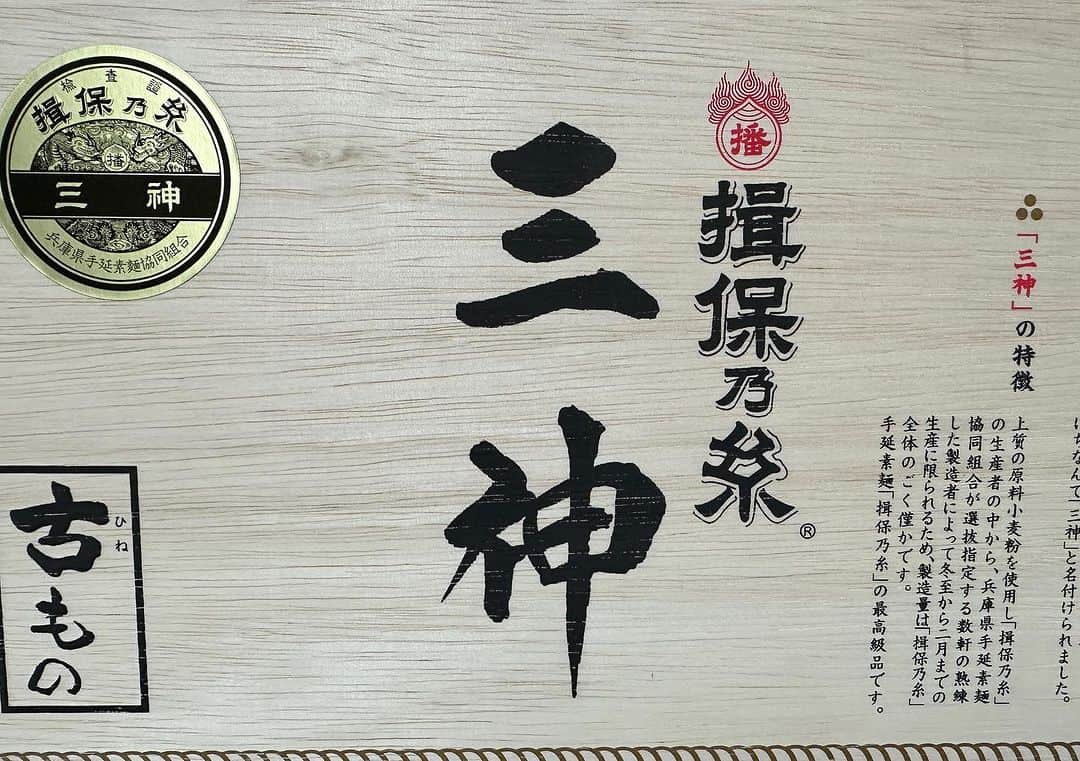 検査證
揖保乃糸
播
三神
兵庫県手延素麺協同組合
播
揖保乃糸
®
三神
古もの
ひね
「三神」の特徴
上質の原料小麦粉を使用し「揖保乃糸」
の生産者の中から、兵庫県手延素麺
協同組合が選抜指定する数軒の熟練
した製造者によって冬至から二月までの
生産に限られるため、製造量は「揖保乃糸」
全体のごく僅かです。
手延素麺「揖保乃糸」の最高級品です。
ちなんで「三神」と名付けられました。